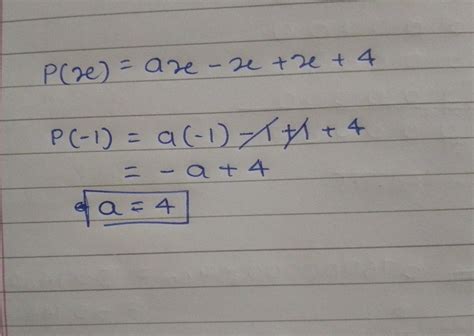 P(x) = ax - x + x + 4
P(-1) = a(-1) - 1 + 1 + 4
= -a + 4
a = 4